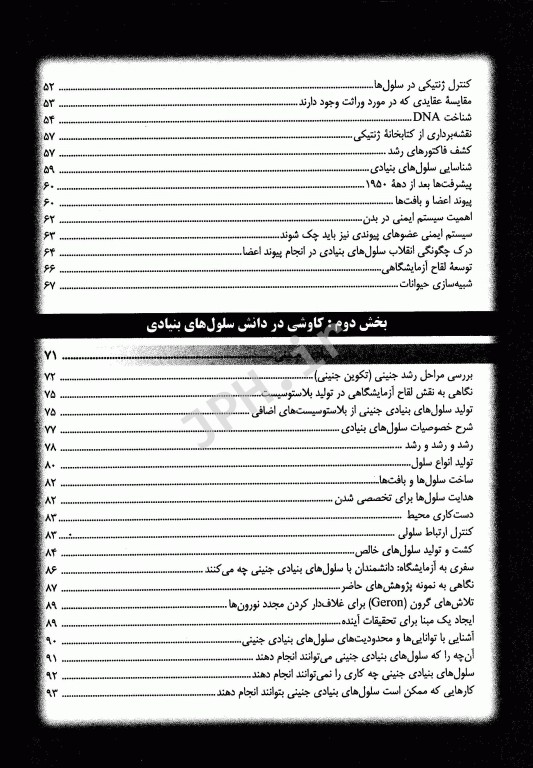 کنترل ژنتیکی در سلول‌ها ۵۲
مقایسهٔ عقایدی که در مورد وراثت وجود دارند ۵۳
شناخت DNA ۵۴
نقشه‌برداری از کتابخانهٔ ژنتیکی ۵۷
کشف فاکتورهای رشد ۵۷
شناسایی سلول‌های بنیادی ۵۹
پیشرفت‌ها بعد از دههٔ ۱۹۵۰ ۶۰
پیوند اعضا و بافت‌ها ۶۰
اهمیت سیستم ایمنی در بدن ۶۲
سیستم ایمنی عضوهای پیوندی نیز باید چک شوند ۶۳
درک چگونگی انقلاب سلول‌های بنیادی در انجام پیوند اعضا ۶۴
توسعهٔ لقاح آزمایشگاهی ۶۶
شبیه‌سازی حیوانات ۶۷
بخش دوم: کاوشی در دانش سلول‌های بنیادی
۷۱
بررسی مراحل رشد جنینی (تکوین جنینی) ۷۲
نگاهی به نقش لقاح آزمایشگاهی در تولید بلاستوسیست ۷۵
تولید سلول‌های بنیادی جنینی از بلاستوسیست‌های اضافی ۷۵
شرح خصوصیات سلول‌های بنیادی ۷۷
رشد و رشد و رشد ۷۸
تولید انواع سلول ۸۰
ساخت سلول‌ها و بافت‌ها ۸۲
هدایت سلول‌ها برای تخصصی شدن ۸۲
دست‌کاری محیط ۸۳
کنترل ارتباط سلولی ۸۳
کشت و تولید سلول‌های خالص ۸۴
سفری به آزمایشگاه: دانشمندان با سلول‌های بنیادی جنینی چه می‌کنند ۸۶
نگاهی به نمونه پژوهش‌های حاضر ۸۷
تلاش‌های گرون (Geron) برای غلاف‌دار کردن مجدد نورون‌ها ۸۹
ایجاد یک مبنا برای تحقیقات آینده ۸۹
آشنایی با توانایی‌ها و محدودیت‌های سلول‌های بنیادی جنینی ۹۰
آن‌چه را که سلول‌های بنیادی جنینی می‌توانند انجام دهند ۹۱
سلول‌های بنیادی جنینی چه کاری را نمی‌توانند انجام دهند ۹۲
کارهایی که ممکن است سلول‌های بنیادی جنینی بتوانند انجام دهند ۹۳
JPH.ir